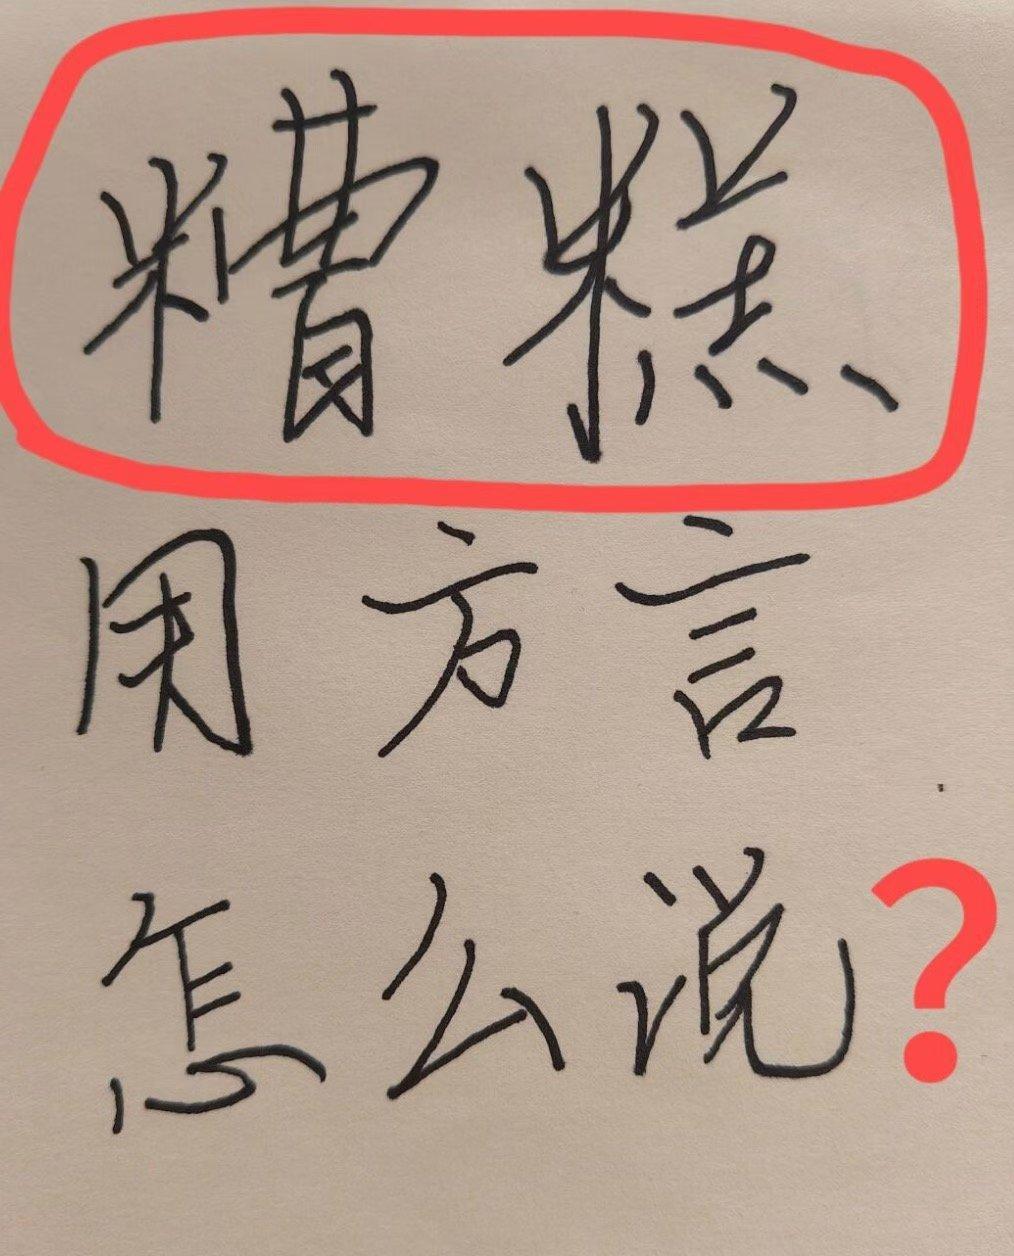 糟糕
用方言
怎么说?